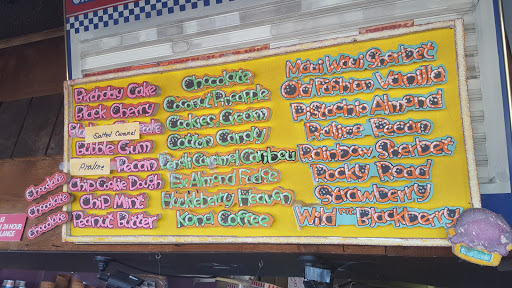 Birthday Cake
Black Cherry
Salted Caramel
Bubble Gum
Praline Pecan
Chip Cookie Dough
Chip Mint
Peanut Butter
Chocolate
Chocolate
Chocolate
Chocolate
Coconut Pineapple
Cookies Cream
Cotton Candy
Caramel Caribou
Ex. Almond Fudge
Huckleberry Heaven
Kona Coffee
Maui Waui Sherbet
Old Fashion Vanilla
Pistachio Almond
Praline Pecan
Rainbow Sherbet
Rocky Road
Strawberry
Wild Mtn Blackberry
24 HOUR